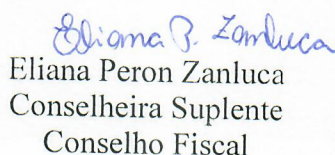 Eliana P. Zanluca
Eliana Peron Zanluca
Conselheira Suplente
Conselho Fiscal